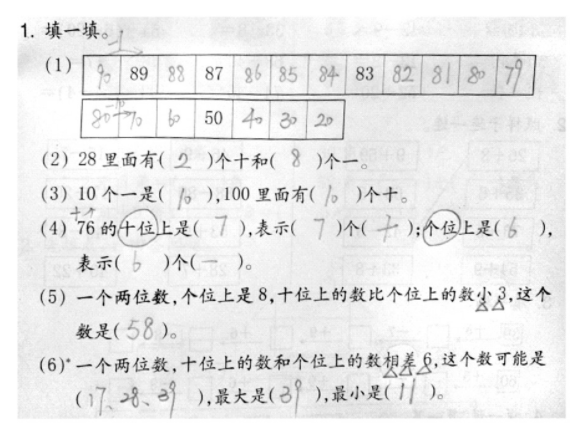 1. 填一填。
-1
(1) 90 89 88 87 86 85 84 83 82 81 80 79
-10
80 70 60 50 40 30 20
(2) 28里面有( 2 )个十和( 8 )个一。
(3) 10个一是( 10 ),100里面有( 10 )个十。
(4) 76的十位上是( 7 ),表示( 7 )个( 十 );个位上是( 6 ),
表示( 6 )个( 一 )。
(5) 一个两位数,个位上是8,十位上的数比个位上的数小3,这个
数是( 58 )。
(6)* 一个两位数,十位上的数和个位上的数相差6,这个数可能是
( 17、28、39 ),最大是( 39 ),最小是( 11 )。